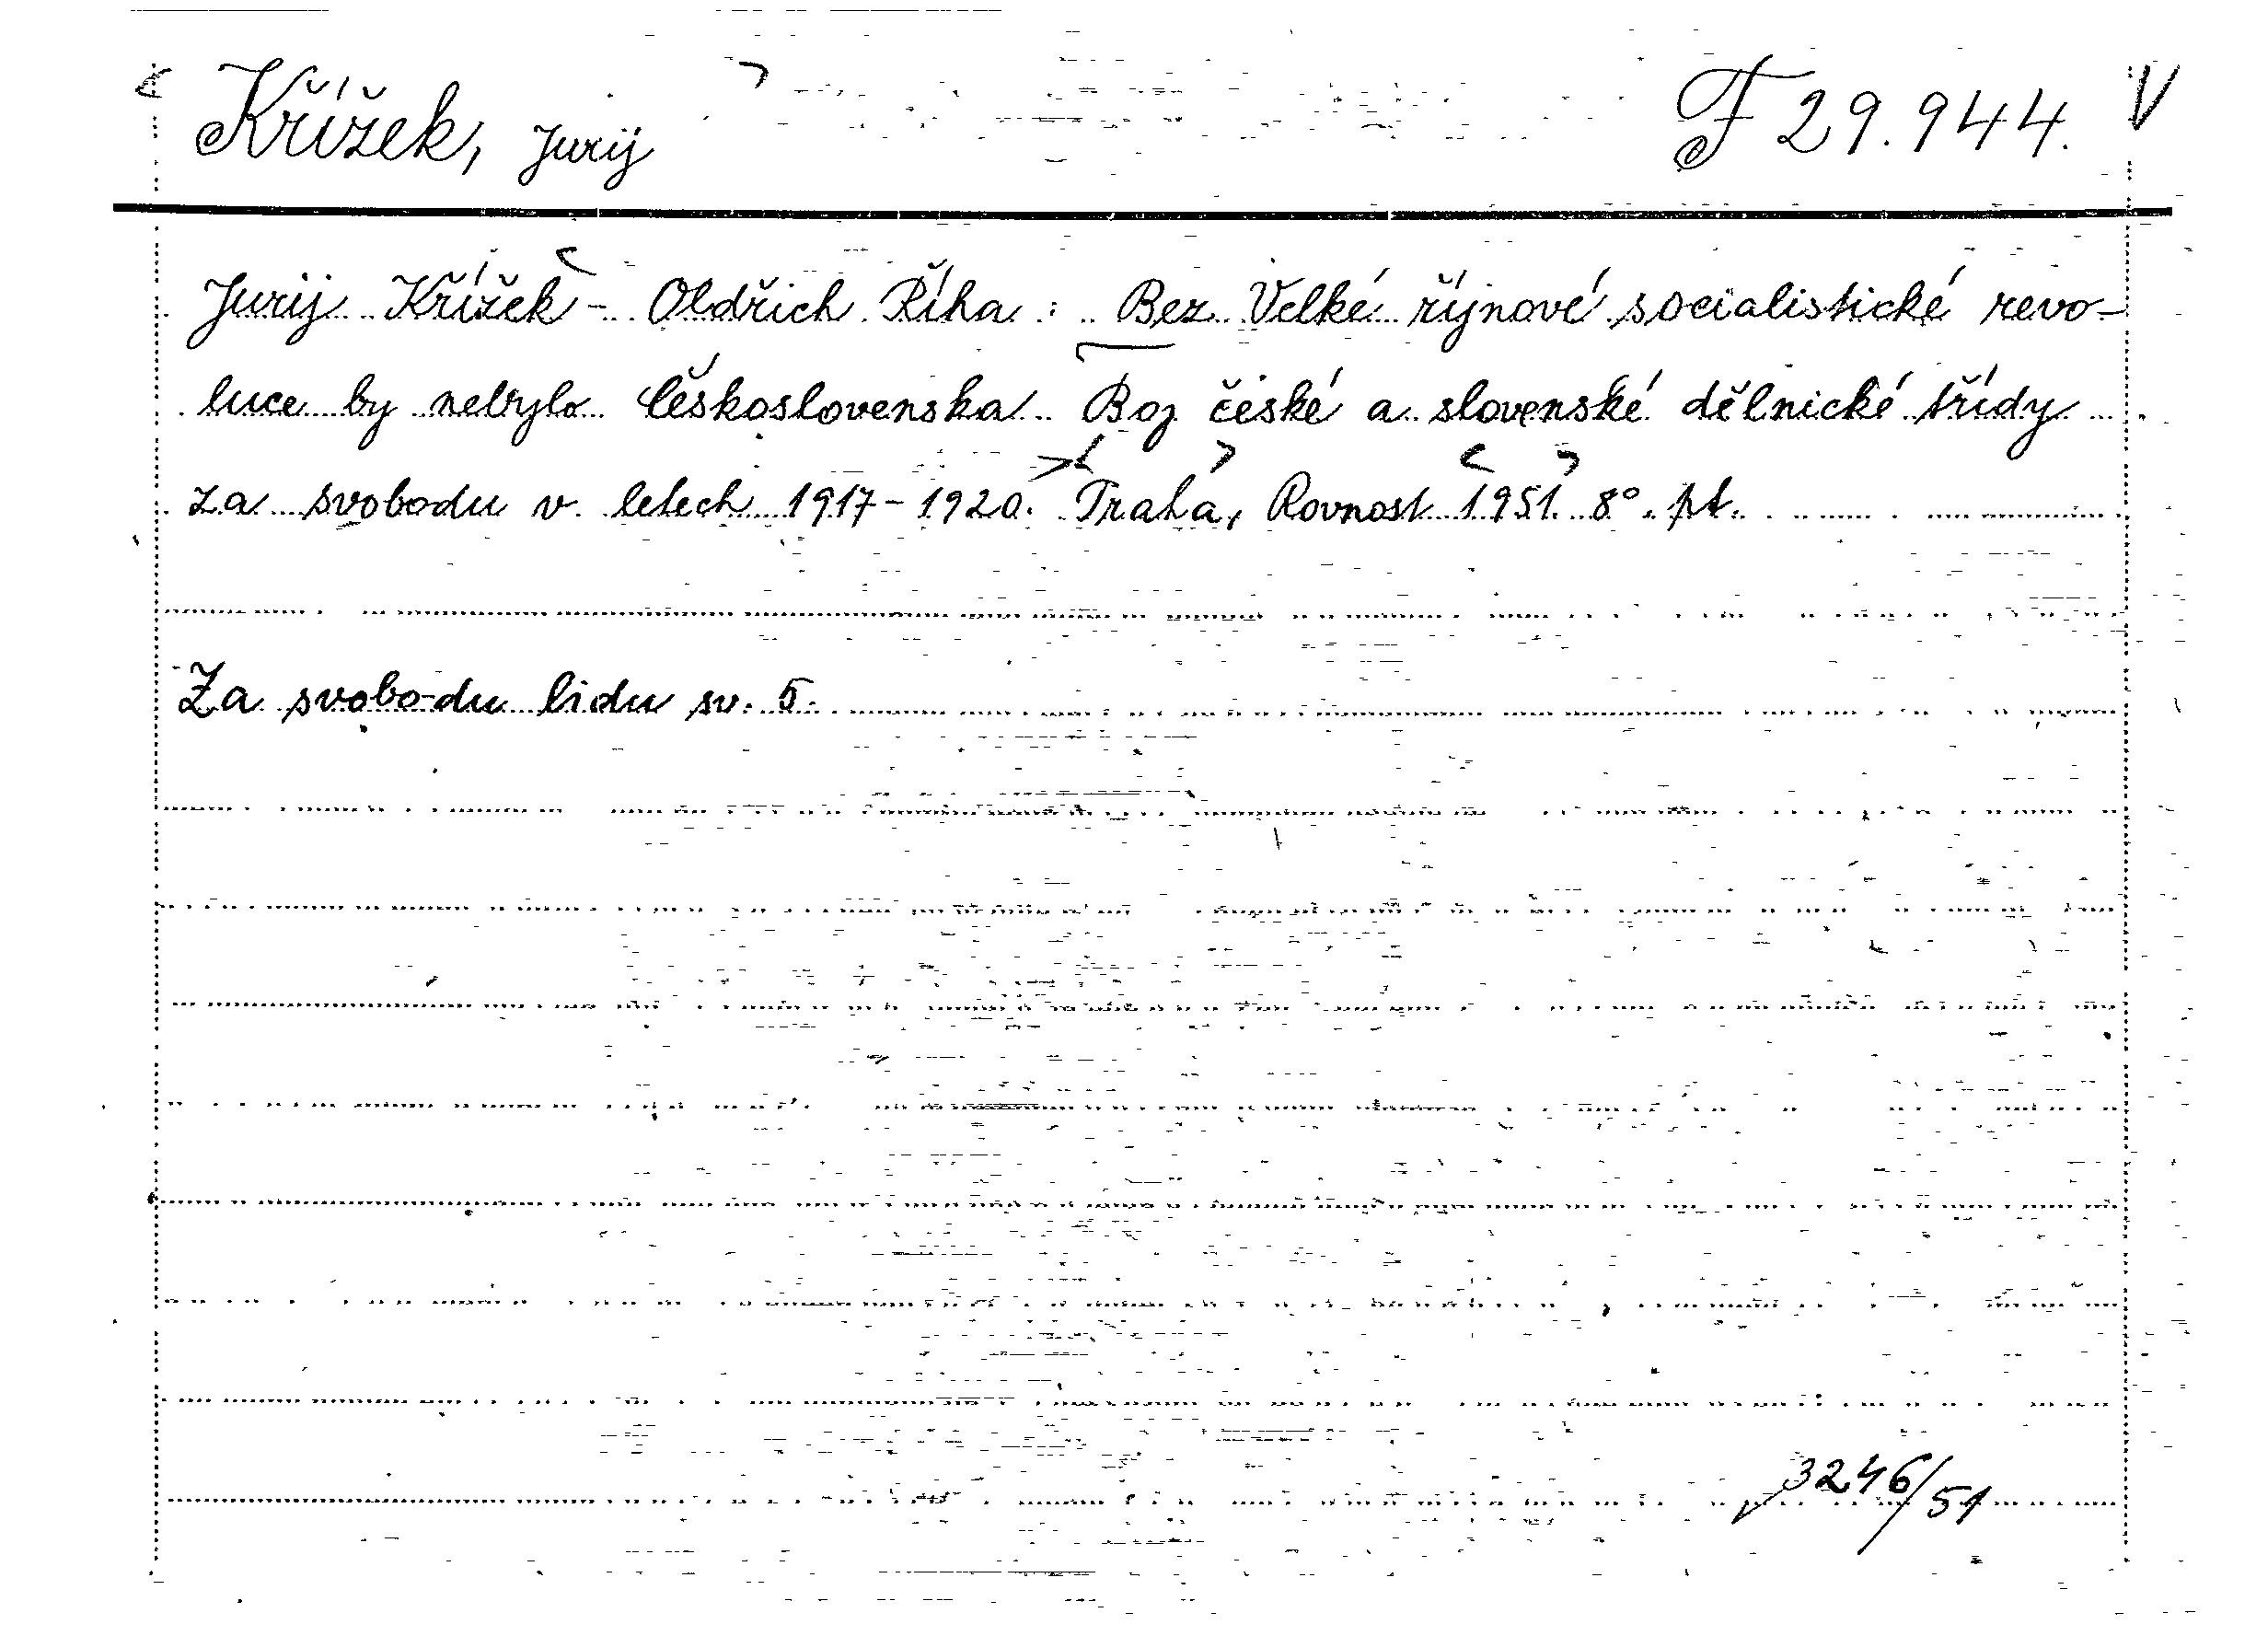 Křížek, Jurij F 29.944. V
Jurij Křížek - Oldřich Říha : Bez Velké říjnové socialistické revo-
luce by nebylo Československa. Boj české a slovenské dělnické třídy
za svobodu v letech 1917-1920. Praha, Rovnost 1951. 8°. pt.
Za svobodu lidu sv. 5.
3246/51